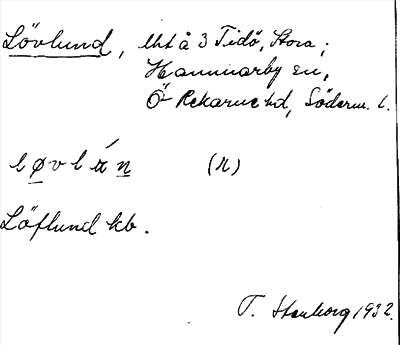 Lövlund, lht å 3 Tidö, Stora,
Hammarby sn,
Ö Rekarne hd, Söderm. l.
løvlán (N)
Löflund kb.
T. Stenborg 1932.